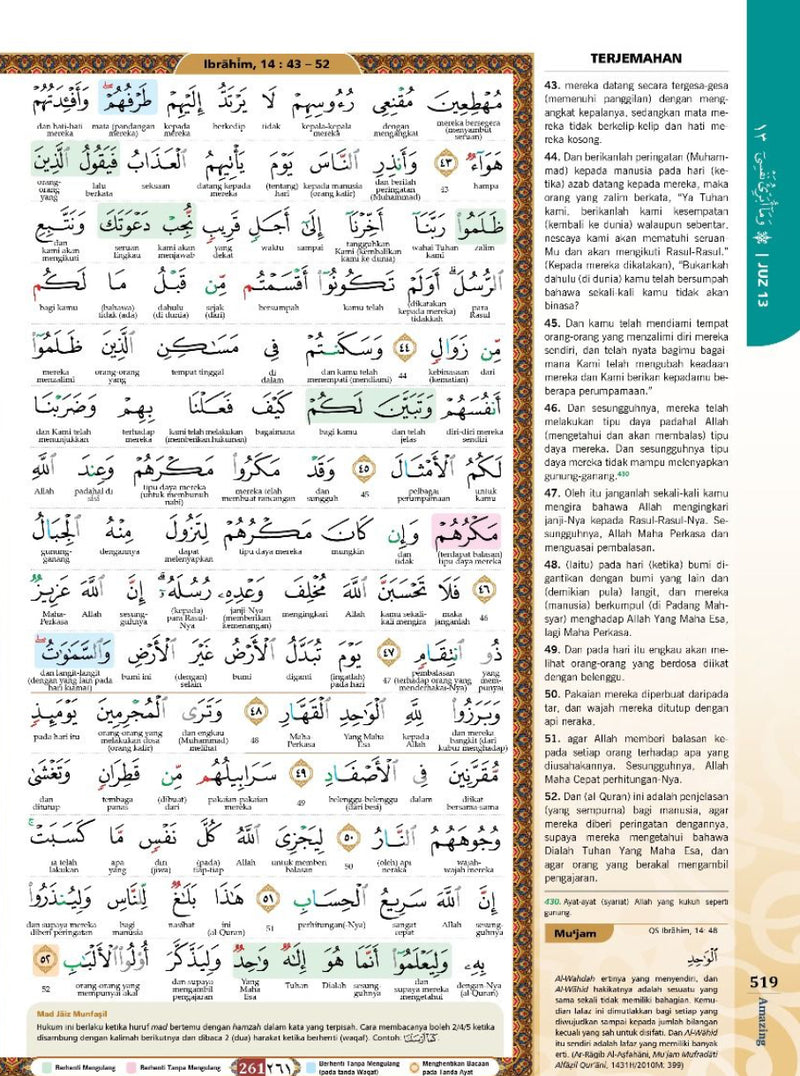 Ibrāhīm, 14 : 43 – 52
مُهْطِعِينَ مُقْنِعِى رُءُوسِهِمْ لَا يَرْتَدُّ إِلَيْهِمْ طَرْفُهُمْ ۖ وَأَفْـِٔدَتُهُمْ
dan hati-hati mereka mata (pandangan mereka) kepada mereka berkedip tidak kepala-kepala mereka dengan mengangkat mereka bersegera (menyambut seruan)
هَوَآءٌ ٤٣ وَأَنذِرِ ٱلنَّاسَ يَوْمَ يَأْتِيهِمُ ٱلْعَذَابُ فَيَقُولُ ٱلَّذِينَ
orang-orang yang lalu berkata seksaan datang kepada mereka (tentang) hari kepada manusia (orang kafir) dan berilah peringatan (Muhammad) 43 hampa
ظَلَمُوا۟ رَبَّنَآ أَخِّرْنَآ إِلَىٰٓ أَجَلٍ قَرِيبٍ نُّجِبْ دَعْوَتَكَ وَنَتَّبِعِ
dan kami akan mengikuti seruan Engkau kami akan menjawab yang dekat waktu sampai tangguhkan Kami (kembalikan kami ke dunia) wahai Tuhan kami zalim
ٱلرُّسُلَ ۗ أَوَلَمْ تَكُونُوٓا۟ أَقْسَمْتُم مِّن قَبْلُ مَا لَكُم
bagi kamu (bahawa) tidak (ada) dahulu (di dunia) sejak (dari) bersumpah kamu telah (dikatakan kepada mereka) tidakkah para Rasul
مِّن زَوَالٍ ٤٤ وَسَكَنتُمْ فِى مَسَـٰكِنِ ٱلَّذِينَ ظَلَمُوٓا۟
mereka menzalimi orang-orang yang tempat tinggal di dalam dan kamu telah menempati (mendiami) 44 kebinasaan (kematian) dari
أَنفُسَهُمْ وَتَبَيَّنَ لَكُمْ كَيْفَ فَعَلْنَا بِهِمْ وَضَرَبْنَا
dan Kami telah menunjukkan terhadap mereka kami telah melakukan (memberikan hukuman) bagaimana bagi kamu dan telah jelas diri-diri mereka sendiri
لَكُمُ ٱلْأَمْثَالَ ٤٥ وَقَدْ مَكَرُوا۟ مَكْرَهُمْ وَعِندَ ٱللَّهِ
Allah padahal di sisi tipu daya mereka (untuk membunuh nabi) mereka telah membuat rancangan dan sungguh 45 pelbagai perumpamaan untuk kamu
مَكْرُهُمْ وَإِن كَانَ مَكْرُهُمْ لِتَزُولَ مِنْهُ ٱلْجِبَالُ
gunung-ganang dengannya dapat melenyapkan tipu daya mereka mungkin dan tidak (terdapat balasan) tipu daya mereka
٤٦ فَلَا تَحْسَبَنَّ ٱللَّهَ مُخْلِفَ وَعْدِهِۦ رُسُلَهُۥٓ ۗ إِنَّ ٱللَّهَ عَزِيزٌ
Maha-Perkasa Allah sesung-guhnya (kepada) para Rasul-Nya janji-Nya (memberikan kemenangan) mengingkari Allah kamu sekali-kali mengira janganlah 46
ذُو ٱنتِقَامٍ ٤٧ يَوْمَ تُبَدَّلُ ٱلْأَرْضُ غَيْرَ ٱلْأَرْضِ وَٱلسَّمَـٰوَٰتُ ۖ
dan langit-langit (dengan yang lain pada hari kiamat) bumi ini (dengan) selain bumi diganti (ingatlah) pada hari 47 pembalasan (terhadap orang yang menderhakai-Nya) yang mem-punyai
وَبَرَزُوا۟ لِلَّهِ ٱلْوَٰحِدِ ٱلْقَهَّارِ ٤٨ وَتَرَى ٱلْمُجْرِمِينَ يَوْمَئِذٍ
pada hari itu orang-orang yang melakukan dosa (orang kafir) dan engkau (Muhammad) melihat 48 Maha-Perkasa Yang Maha Esa kepada Allah dan mereka bangkit (dari kubur menghadap)
مُّقَرَّنِينَ فِى ٱلْأَصْفَادِ ٤٩ سَرَابِيلُهُم مِّن قَطِرَانٍ وَتَغْشَىٰ
dan ditutup tembaga panas (dibuat) dari pakaian-pakaian mereka 49 belenggu-belenggu (dari besi) dalam diikat bersama-sama
وُجُوهَهُمُ ٱلنَّارُ ٥٠ لِيَجْزِىَ ٱللَّهُ كُلَّ نَفْسٍ مَّا كَسَبَتْ ۚ
ia telah lakukan apa yang diri (jiwa) (pada) tiap-tiap Allah untuk memberi balasan 50 (oleh) api neraka wajah-wajah mereka
إِنَّ ٱللَّهَ سَرِيعُ ٱلْحِسَابِ ٥١ هَـٰذَا بَلَـٰغٌ لِّلنَّاسِ وَلِيُنذَرُوا۟
dan supaya mereka diberi peringatan bagi manusia nasihat ini (al Quran) 51 perhitungan(-Nya) sangat cepat Allah sesung-guhnya
بِهِۦ وَلِيَعْلَمُوٓا۟ أَنَّمَا هُوَ إِلَـٰهٌ وَٰحِدٌ وَلِيَذَّكَّرَ أُو۟لُوا۟ ٱلْأَلْبَـٰبِ ٥٢
52 orang-orang yang mempunyai akal dan supaya mengambil pengajaran Yang Maha Esa Tuhan Dialah sesung-guhnya dan supaya mereka mengetahui dengan-Nya (al Quran)
Mad Jāiz Munfaṣil
Hukum ini berlaku ketika huruf mad bertemu dengan hamzah dalam kata yang terpisah. Cara membacanya boleh 2/4/5 ketika
disambung dengan kalimah berikutnya dan dibaca 2 (dua) harakat ketika berhenti (waqaf). Contoh:
Berhenti Mengulang
Berhenti Tanpa Mengulang
261 ٢٦١
Berhenti Tanpa Mengulang (pada tanda Waqaf)
Menghentikan Bacaan pada Tanda Ayat
TERJEMAHAN
43. mereka datang secara tergesa-gesa
(memenuhi panggilan) dengan meng-
angkat kepalanya, sedangkan mata me-
reka tidak berkelip-kelip dan hati me-
reka kosong.
44. Dan berikanlah peringatan (Muham-
mad) kepada manusia pada hari (ke-
tika) azab datang kepada mereka, maka
orang yang zalim berkata, “Ya Tuhan
kami, berikanlah kami kesempatan
(kembali ke dunia) walaupun sebentar,
nescaya kami akan mematuhi seruan-
Mu dan akan mengikuti Rasul-Rasul.”
(Kepada mereka dikatakan), “Bukankah
dahulu (di dunia) kamu telah bersumpah
bahawa sekali-kali kamu tidak akan
binasa?
45. Dan kamu telah mendiami tempat
orang-orang yang menzalimi diri mereka
sendiri, dan telah nyata bagimu bagai-
mana Kami telah mengubah keadaan
mereka dan Kami berikan kepadamu be-
berapa perumpamaan.”
46. Dan sesungguhnya, mereka telah
melakukan tipu daya padahal Allah
(mengetahui dan akan membalas) tipu
daya mereka. Dan sesungguhnya tipu
daya mereka tidak mampu melenyapkan
gunung-ganang.430
47. Oleh itu janganlah sekali-kali kamu
mengira bahawa Allah mengingkari
janji-Nya kepada Rasul-Rasul-Nya. Se-
sungguhnya, Allah Maha Perkasa dan
menguasai pembalasan.
48. (Iaitu) pada hari (ketika) bumi di-
gantikan dengan bumi yang lain dan
(demikian pula) langit, dan mereka
(manusia) berkumpul (di Padang Mah-
syar) menghadap Allah Yang Maha Esa,
lagi Maha Perkasa.
49. Dan pada hari itu engkau akan me-
lihat orang-orang yang berdosa diikat
dengan belenggu.
50. Pakaian mereka diperbuat daripada
tar, dan wajah mereka ditutup dengan
api neraka.
51. agar Allah memberi balasan ke-
pada setiap orang terhadap apa yang
diusahakannya. Sesungguhnya, Allah
Maha Cepat perhitungan-Nya.
52. Dan (al Quran) ini adalah penjelasan
(yang sempurna) bagi manusia, agar
mereka diberi peringatan dengannya,
supaya mereka mengetahui bahawa
Dialah Tuhan Yang Maha Esa, dan
agar orang yang berakal mengambil
pengajaran.
430. Ayat-ayat (syariat) Allah yang kukuh seperti
gunung.
Mu‘jam
QS Ibrāhīm, 14: 48
ٱلْوَاحِدِ
Al-Waḥdah ertinya yang menyendiri, dan
Al-Wāḥid hakikatnya adalah sesuatu yang
sama sekali tidak memiliki bahagian. Kemu-
dian lafaz ini dimutlakkan bagi setiap yang
diwujudkan sampai kepada jumlah bilangan
kecuali yang sah untuk disifati. Dan Al-Wāḥid
itu sendiri adalah lafaz yang memiliki banyak
erti. (Ar-Rāgib Al-Aṣfahāni, Mu‘jam Mufradāti
Alfāẓil Qur’āni, 1431H/2010M: 399)
وَمَآ أُبَرِّئُ نَفْسِىٓ ١٣
| JUZ 13
519
Amazing